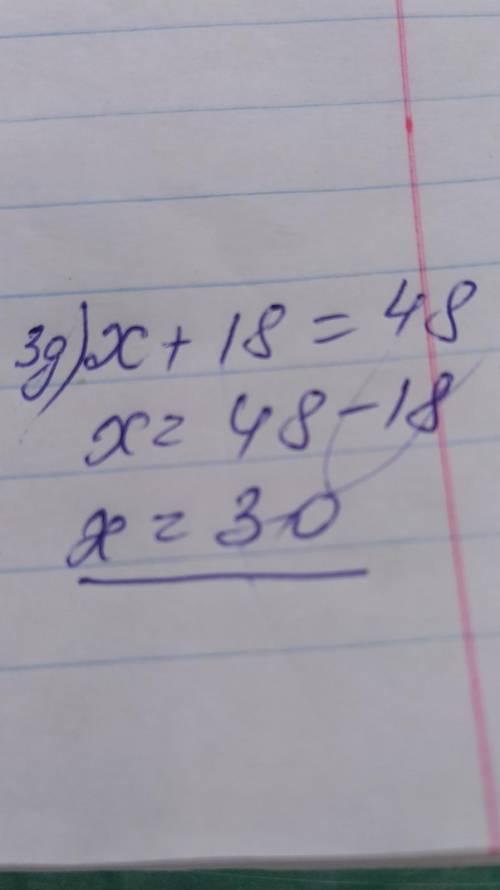 3д) x + 18 = 48
x = 48 - 18
x = 30